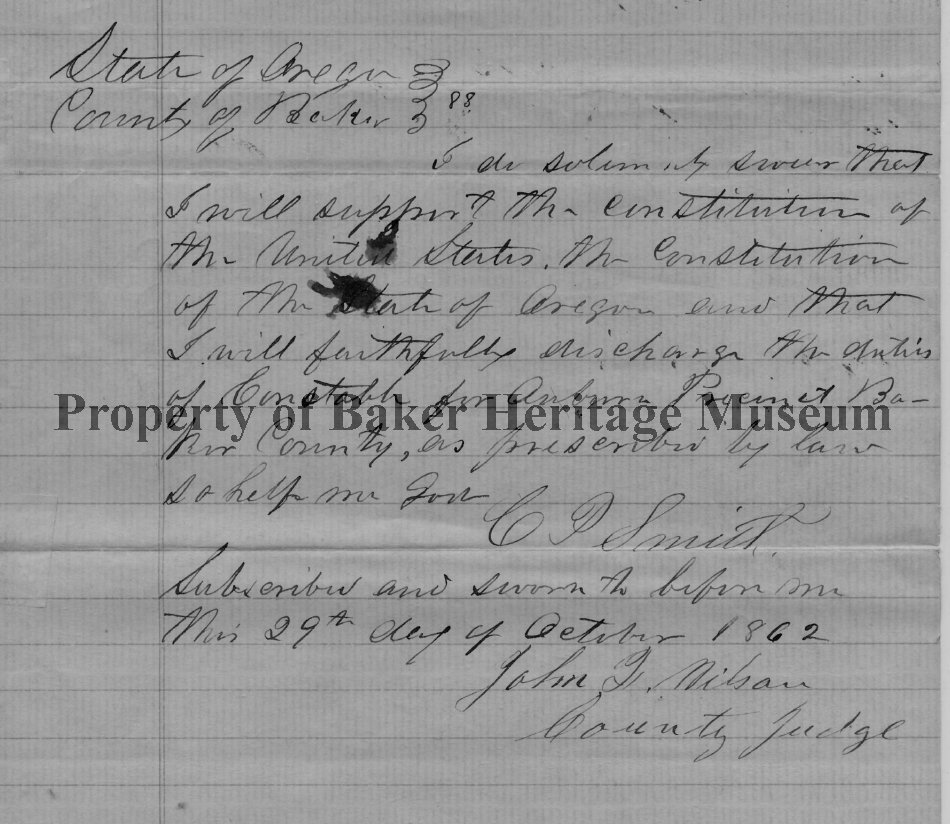 State of Oregon }
County of Baker } ss
I do solemnly swear that
I will support the Constitution of
the United States, the Constitution
of the State of Oregon and that
I will faithfully discharge the duties
of Constable for Auburn Precinct Ba-
Property of Baker Heritage Museum
ker County, as prescribed by law
so help me God
C P Smith
Subscribed and sworn to before me
this 29th day of October 1862
John Q. Wilson
County Judge